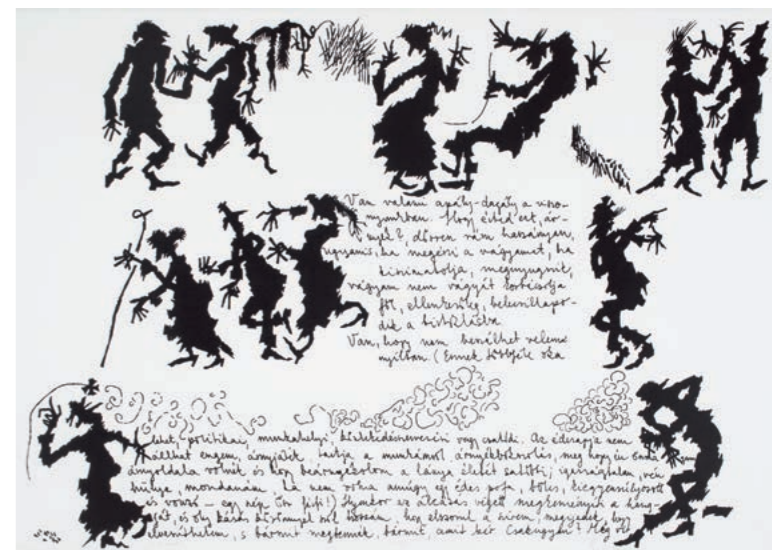 Van valami apály-dagály a viszo-
nyunkban. Hogy érted ezt, ár-
nyék?, dörren rám harsányan,
ugyanis, ha megérzi a vágyamat, ha
kiszimatolja, megnyugszik,
vágyam nem vágyát korbácsolja
föl, ellenkezőleg, belecsillapo-
dik a birtoklásba.
Van, hogy nem beszélhet velem
nyíltan. (Ennek többféle oka
lehet, politikai, munkahelyi, közlekedésrendészeti vagy családi. Az édesapja nem
állhat engem, árnyjáték, tartja a munkámról, árnyékbokszolás, meg hogy én
árnyoldala volnék és hogy beárnyékolom a lánya életét satöbbi; igazságtalan, vén
hülye, mondanám, ha nem volna amúgy egy édes pofa, bölcs, kiegyensúlyozott
és vonzó – egy nép
Ilyenkor az álcázás végett megkeményíti a hang-
ját, és oly közönnyel szól hozzám, hogy elszorul a szívem, megijedek, hogy
elveszíthetem, s bármit megtennék, bármit, amit kér. Csakugyan? Még